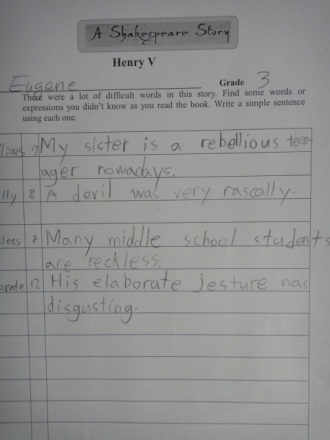 A Shakespeare Story
Henry V
Eugene Grade 3
There were a lot of difficult words in this story. Find some words or
expressions you didn't know as you read the book. Write a simple sentence
using each one.
7 My sister is a rebellious teen
ager nowadays.
8 A devil was very rascally.
8 Many middle school students
are reckless
12 His elaborate jesture
disgusting.